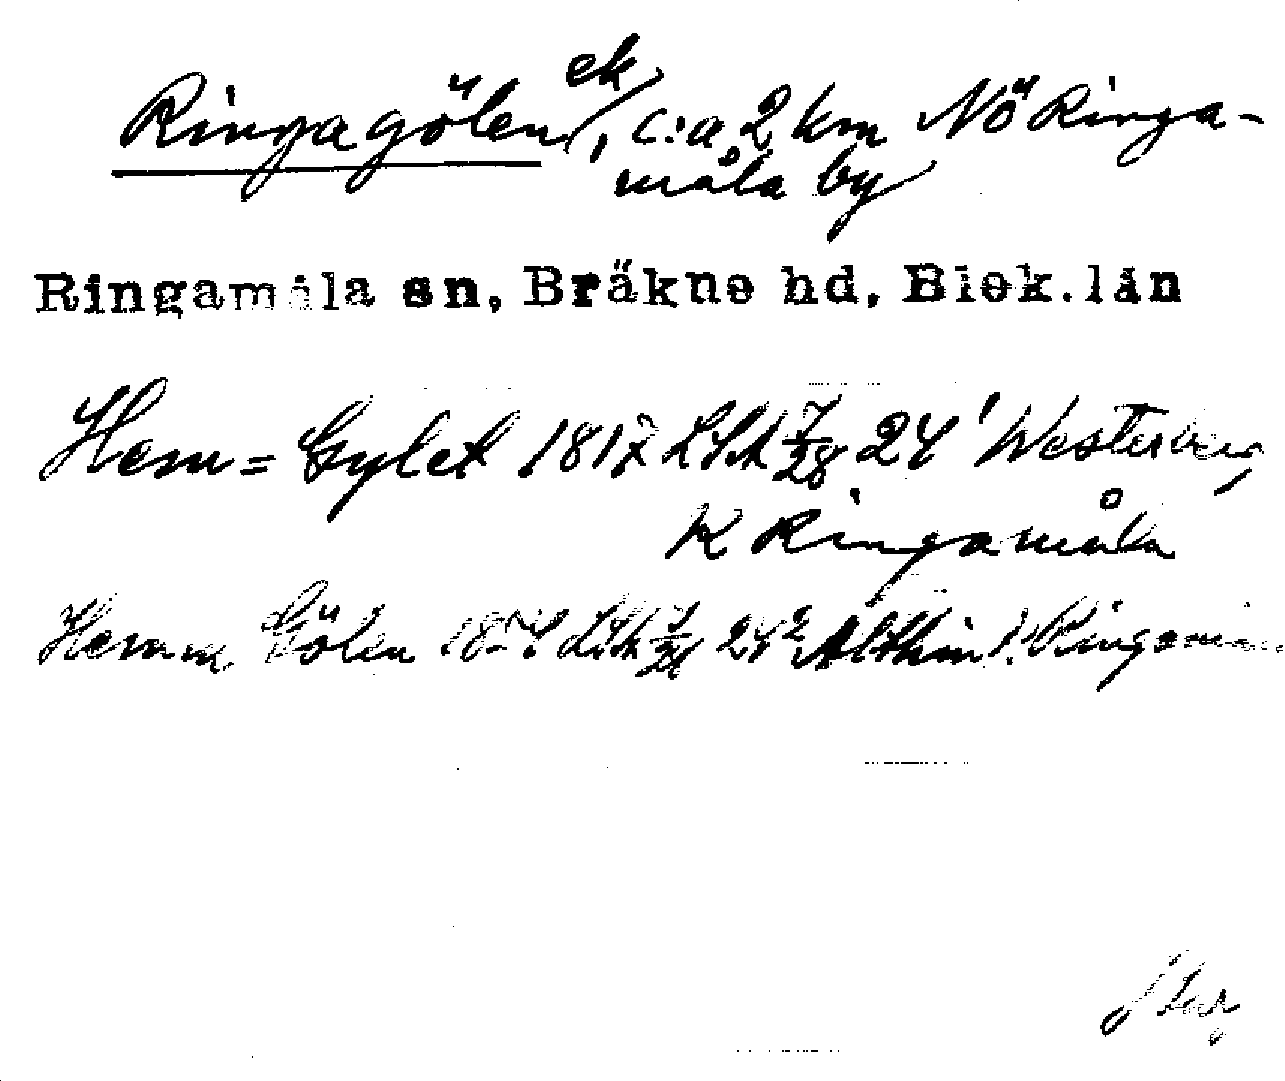 Ringagölen ek, c:a 2 km NÖ Ringa-
måla by
Ringamåla sn, Bräkne hd, Blek.län
Hem= Gylet 1817 LSA 7/28 24' Westerberg
K Ringamåla
Hemm Gölen 18 LSA 24² Althin K Ringam